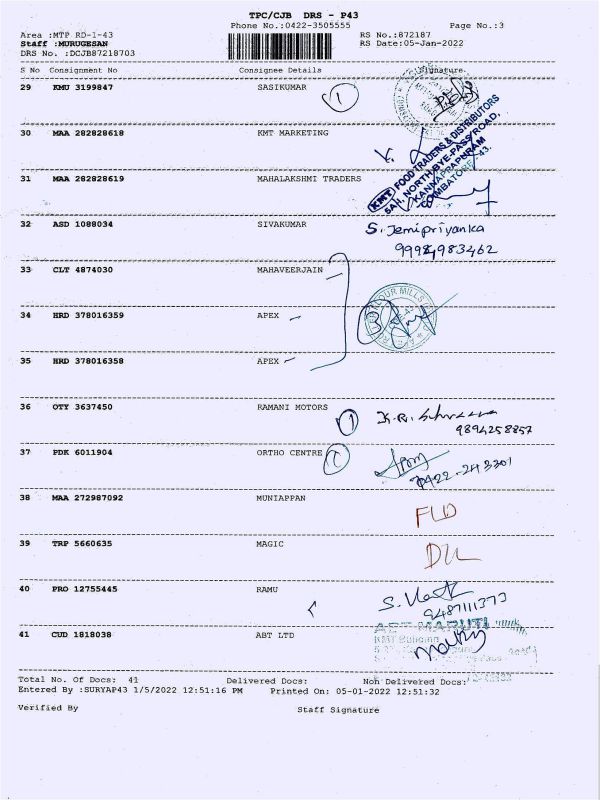 TPC/CJB DRS - P43
Phone No.:0422-3505555 Page No.:3
Area :MTP RD-1-43 RS No.:872187
Staff :MURUGESAN RS Date:05-Jan-2022
DRS No. :DCJB87218703
S No Consignment No Consignee Details Signature
29 KMU 3199847 SASIKUMAR 1
30 MAA 282828618 KMT MARKETING
KMT FOOD TRADERS & DISTRIBUTORS
5AH, NORTH BYE-PASS ROAD,
KANNAPPAPURAM
COIMBATORE-43.
31 MAA 282828619 MAHALAKSHMI TRADERS
32 ASD 1088034 SIVAKUMAR S. Jemipriyanka
9994983462
33 CLT 4874030 MAHAVEERJAIN
34 HRD 378016359 APEX 3
FLOUR MILLS
35 HRD 378016358 APEX
36 OTY 3637450 RAMANI MOTORS 1
9894258857
37 PDK 6011904 ORTHO CENTRE 1
0422-243301
38 MAA 272987092 MUNIAPPAN
FLD
39 TRP 5660635 MAGIC
DLL
40 PRO 12755445 RAMU
9487111373
41 CUD 1818038 ABT LTD
ABT MARUTI
KMT Building
Total No. Of Docs: 41 Delivered Docs: Non Delivered Docs:
Entered By :SURYAP43 1/5/2022 12:51:16 PM Printed On: 05-01-2022 12:51:32
Verified By Staff Signature